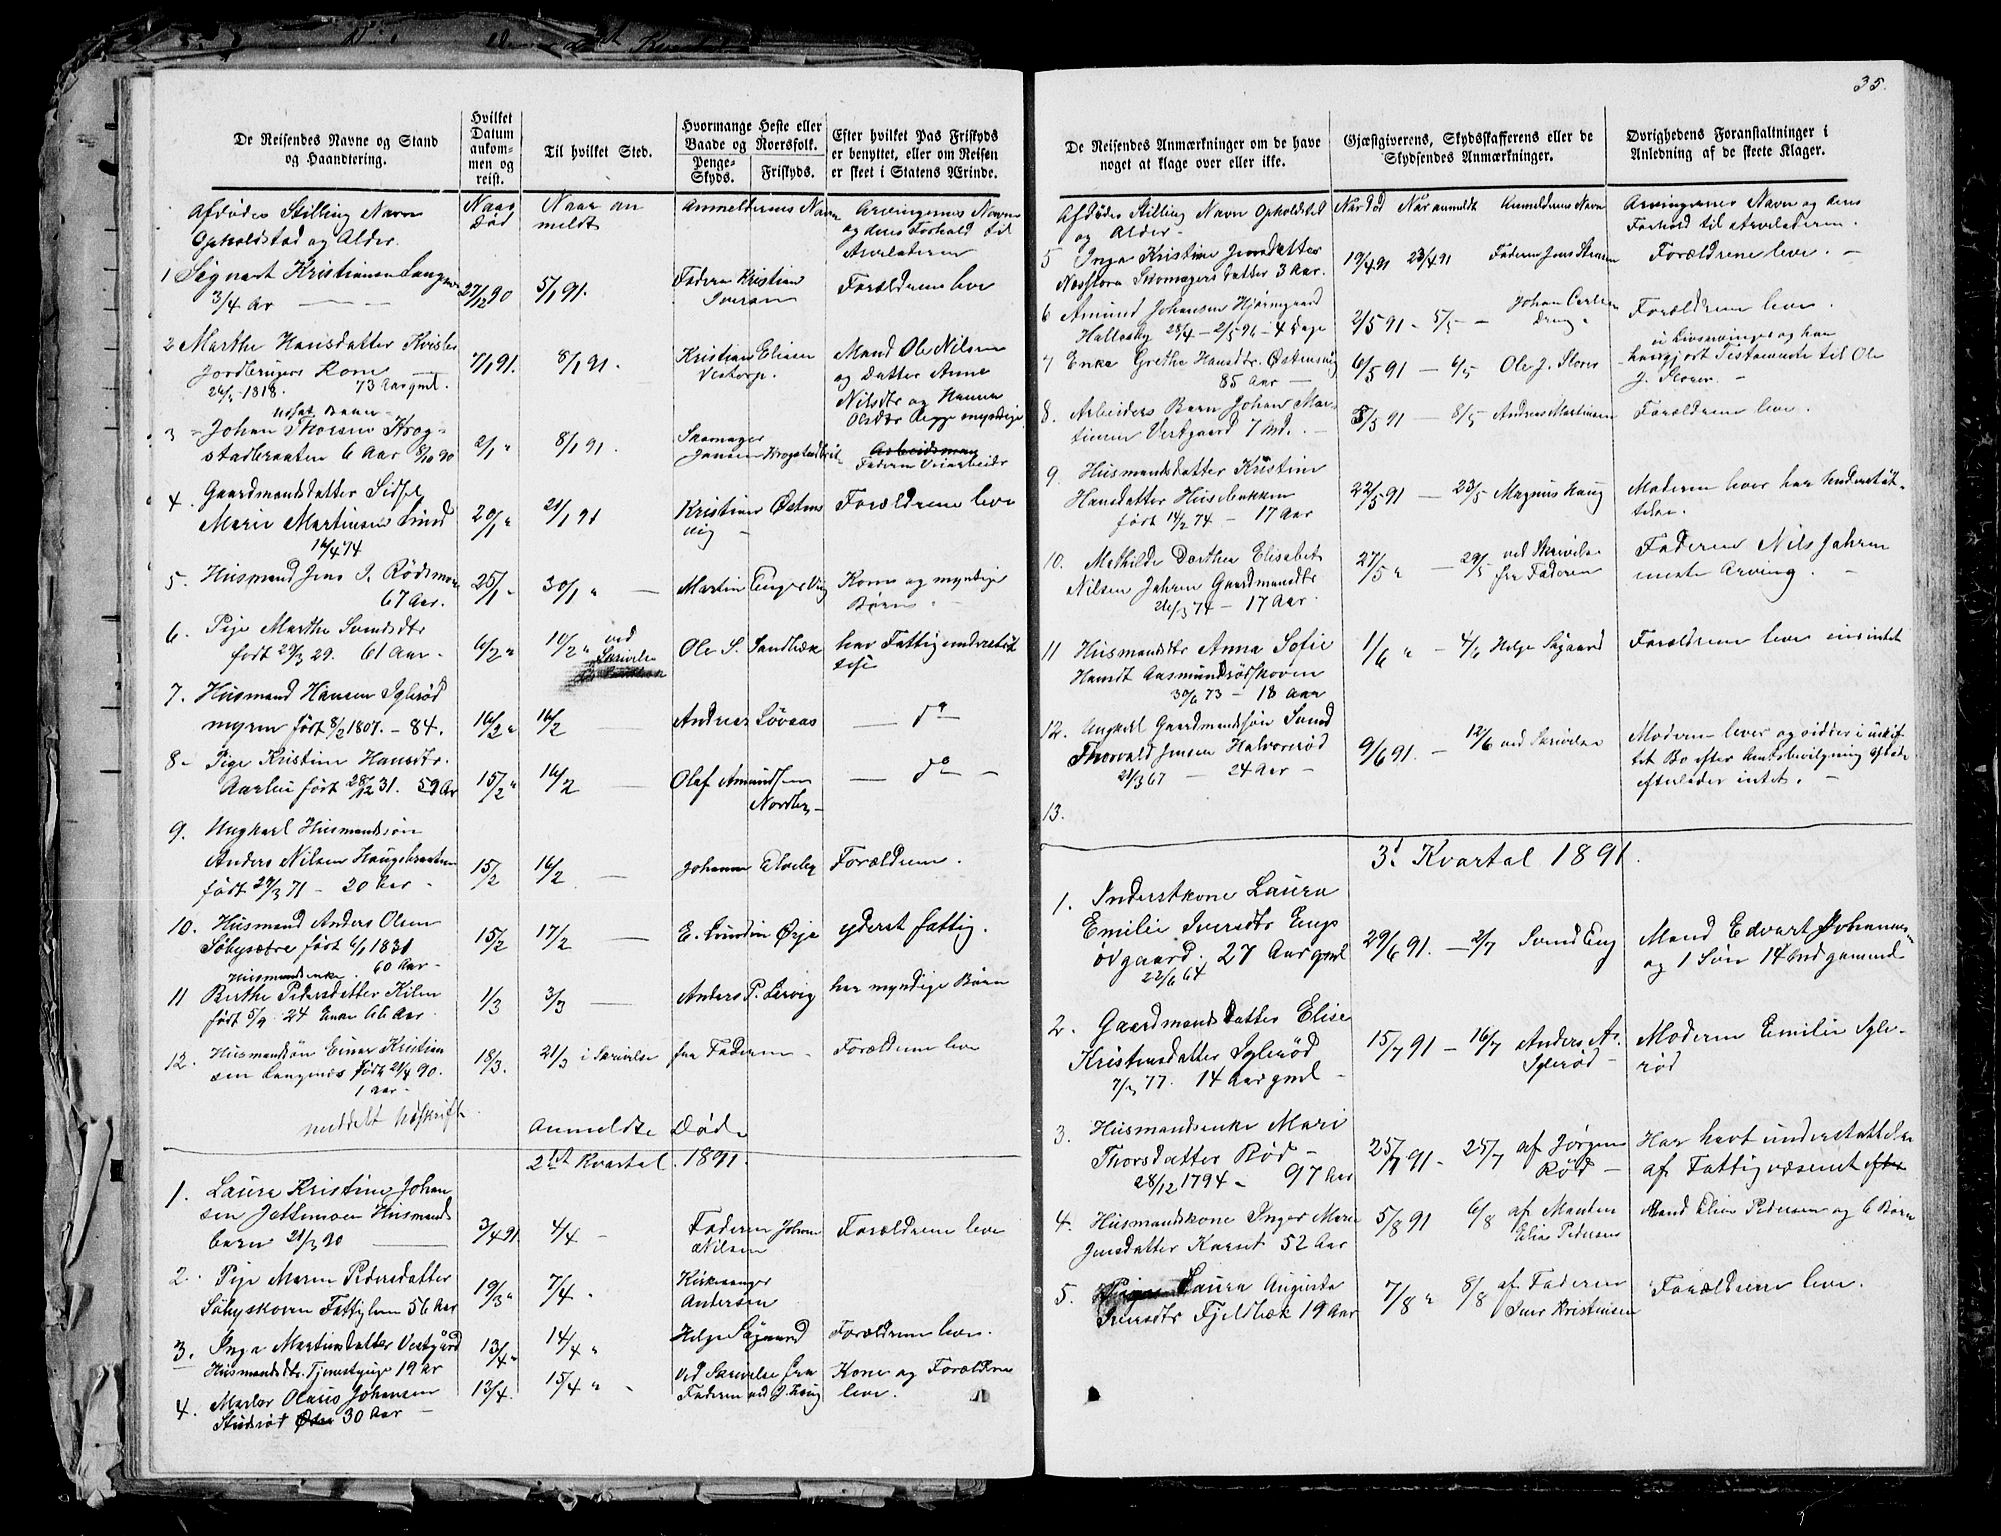 35.
De Reisendes Navne og Stand og Haandtering.
Hvilket Datum ankommen og reist.
Til hvilket Sted.
Hvormange Heste eller Baade og Roersfolk.
Penge-Skyds.
Friskyds.
Efter hvilket Pas Friskyds er benyttet, eller om Reisen er skeet i Statens Ærinde.
Afdødes Stilling Navn Opholdsted og Alder.
Naar Død
Naar anmeldt
Anmeldernes Navn
Arvingernes Navne og deres Forhold til Arveladeren
1 Signart Kristiansen Langnes 27/12 90 5/1 91. Faderen Kristian Iversen Forældrene leve
3/4 Ar
2 Marthe Hansdatter Kvisler 7/1 91. 8/1 91. Kristian Eliasen Vestorp. Mand Ole Nilsen
Jordbrugers Kone og Datter Anne
26/1 1818. 73 Aar gml. Nilsdtr og Hanna
Olsdtr Begge myndige
3 Johan Thorsen Krog- 2/1 " 8/1 91. Skomager Jansen Krogstadbråt
stadbraaten 6 Aar 8/10 90 Faderen Veiarbeider
4. Gaardmandsdatter Sidsel
Marie Martinsen Lund 20/1 " 21/1 91 Kristian Østensvig Forældrene leve
16/4 74
5. Husmand Jens I. Rødsmoen 25/1 " 30/1 " Martin Enger Vig Kone og myndige Børn
67 Aar.
6. Pige Marthe Svendsdtr 6/2 " 10/2 " ved Skrivelse Ole S. Sandbæk hav Fattigunderstøttelse
født 29/3 29. 61 Aar
7. Husmand Hansen Iglerød
myren født 8/2 1807. - 84. 16/2 " 16/2 Andreas Løvaas do
8. Pige Kristine Hansdtr.
Aarlie født 28/12 31. 59 Ar 15/2 " 16/2 Olaf Amundsen Nordby do
9. Ungkarl Husmandssøn
Anders Nilsen Haugsbraaten 15/2 16/2 Johannes Forældrene.
født 27/3 71 - 20 Aar
10. Husmand Anders Olsen 15/2 17/2 E. Lundin Ørje yderst fattig.
Søbysætre født 6/1 1831
60 Aar
Husmandsenke.
11 Berthe Pedersdatter Kilen 1/3 3/3 Anders P. Lervig har myndige Børn
født 5/9 24 Enke 66 Aar.
12. Husmandsøn Einar Kristian 18/3. 21/3 i Skrivelse fra Faderen Forældrene leve
sen Langnæs født 21/4 90.
1 Aar
meddelt Udskrift
Anmeldte Døde
2det Kvartal 1891.
1. Laura Kristine Johan
sen Jottemoen Husmands 3/4 91 4/4 Faderen Johan Nilsen Forældrene leve
barn 21/3 90
2. Pige Maren Pedersdatter 19/3 " 7/4 Kirkesanger Andersen
Søbyskoven Fattiglem 56 Aar
3. Inga Martinsdatter Vestgård 13/4 " 14/4 " Helge Sågaard Forældrene leve.
Husmandsdtr. Tjenestepige 19 År
4. Olaus Johansen 13/4. 15/4 " Ved Skrivelse fra Faderen ved J. Haug Kone og Forældre leve.
30 Aar
De Reisendes Anmærkninger om de have noget at klage over eller ikke.
Gjæstgiverens, Skydsskafferens eller de Skydsendes Anmærkninger.
Øvrighedens Foranstaltninger i Anledning af de skeete Klager.
Afdødes Stilling Navn Opholdsted og Alder
Når Død
Når anmeldt
Anmeldernes Navn
Arvingernes Navn og deres Forhold til Arveladeren.
5 Inga Kristine Jensdatter 19/4 91 23/4 91 Faderen Jens Forældrene leve.
Skomagers Datter 3 Aar.
6 Amund Johansen Hjørnegaard 2/5 91 - 5/5 - Johan Carlsen Forældrene leve.
Hallesby 28/4 - 2/5 91 - 4 Dage
7 Enke Grethe Hansdtr. Østensvig 6/5 91 - 6/5 Ole J. Slorer
er Livsarvinger og han har gjort Testamente til Ole J. Slorer.
85 Aar
8. Arbeiders Barn Johan Mar- 8/5 91 - 8/5 Andreas Martinsen Forældrene leve.
tinsen Vestgaard 7 Md.
9. Husmandsdatter Kristine
Hansdatter Husebakken 22/5 91 - 23/5 Magnus Haug Moderen lever har Understøt-
telse.
født 14/2 74 - 17 Aar
10. Mathilde Dorthea Elisabet 27/5 " - 29/5 ved Skrivelse fra Faderen Faderen Nils Jahren
Nilsen Jahren Gaardmandsdtr neste Arving.
26/3 74 - 17 Aar.
11 Husmandsdtr Anna Sofie 1/6 " - 4/6 Helge Sågaard Forældrene leve
Hansdt Aasmundrødskoven
30/6 73 - 18 Aar
12. Ungkarl Gaardmandssøn
Thorvald Jensen Halvorsrød 9/6 91. - 12/6 ved Skrivelse Moderen lever og sidder i uskif
tet Bo efter Amtsbevilgning Afdøde
21/3 67 - 24 Aar efterlader intet.
13.
3d Kvartal 1891.
1. Inderstkone Laura
Emilie Iversdtr Eng 29/6 91. - 2/7 Svend Eng Mand Edvart Johannes
ødegaard. 27 Aar gml og 1 Søn 14 Md gammel
22/6 64
2. Gaardmandsdatter Elise
Kristensdatter Iglerød 15/7 91 - 16/7 Anders A. Iglerød Moderen Emilie Igle-
rød
7/3 77. 14 Aar gml
3. Husmandsenke Mari
Thorsdatter Rød 25/7 91 - 25/7 af Jørgen Rød Har havt understøttelse
af Fattigvæsenet
28/12 1794 - 97 Aar
4. Husmandskone Inger Marie 5/8 91 6/8 af Manden Elias Pedersen Mand Elias Pedersen og 6 Børn
Jensdatter Karset 52 Aar
5. Laura Augusta 7/8 " 8/8 af Faderen Iver Kristiansen Forældrene leve.
Iversdtr Fjeldbæk 19 Aar